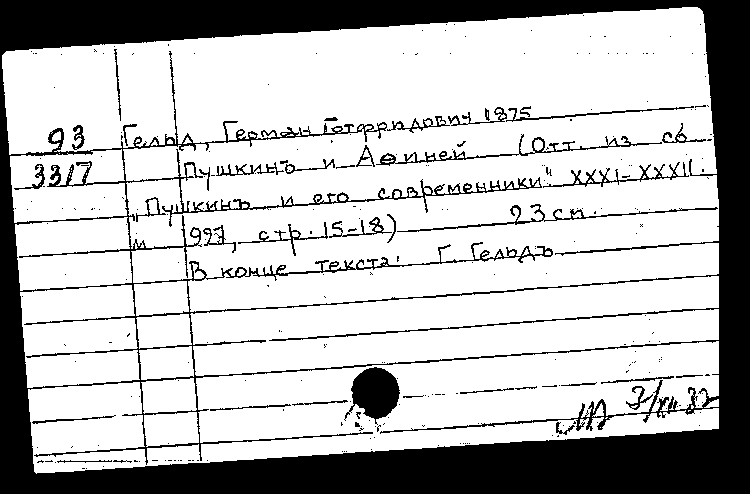 93 Гельд, Герман Готфридович 1875
33/7 Пушкинъ и Афиней (Отт. из сб
„Пушкинъ и его современники". XXXI-XXXII.
927, стр. 15-18) 23 см.
В конце текста: Г. Гельдъ
3/XII 32